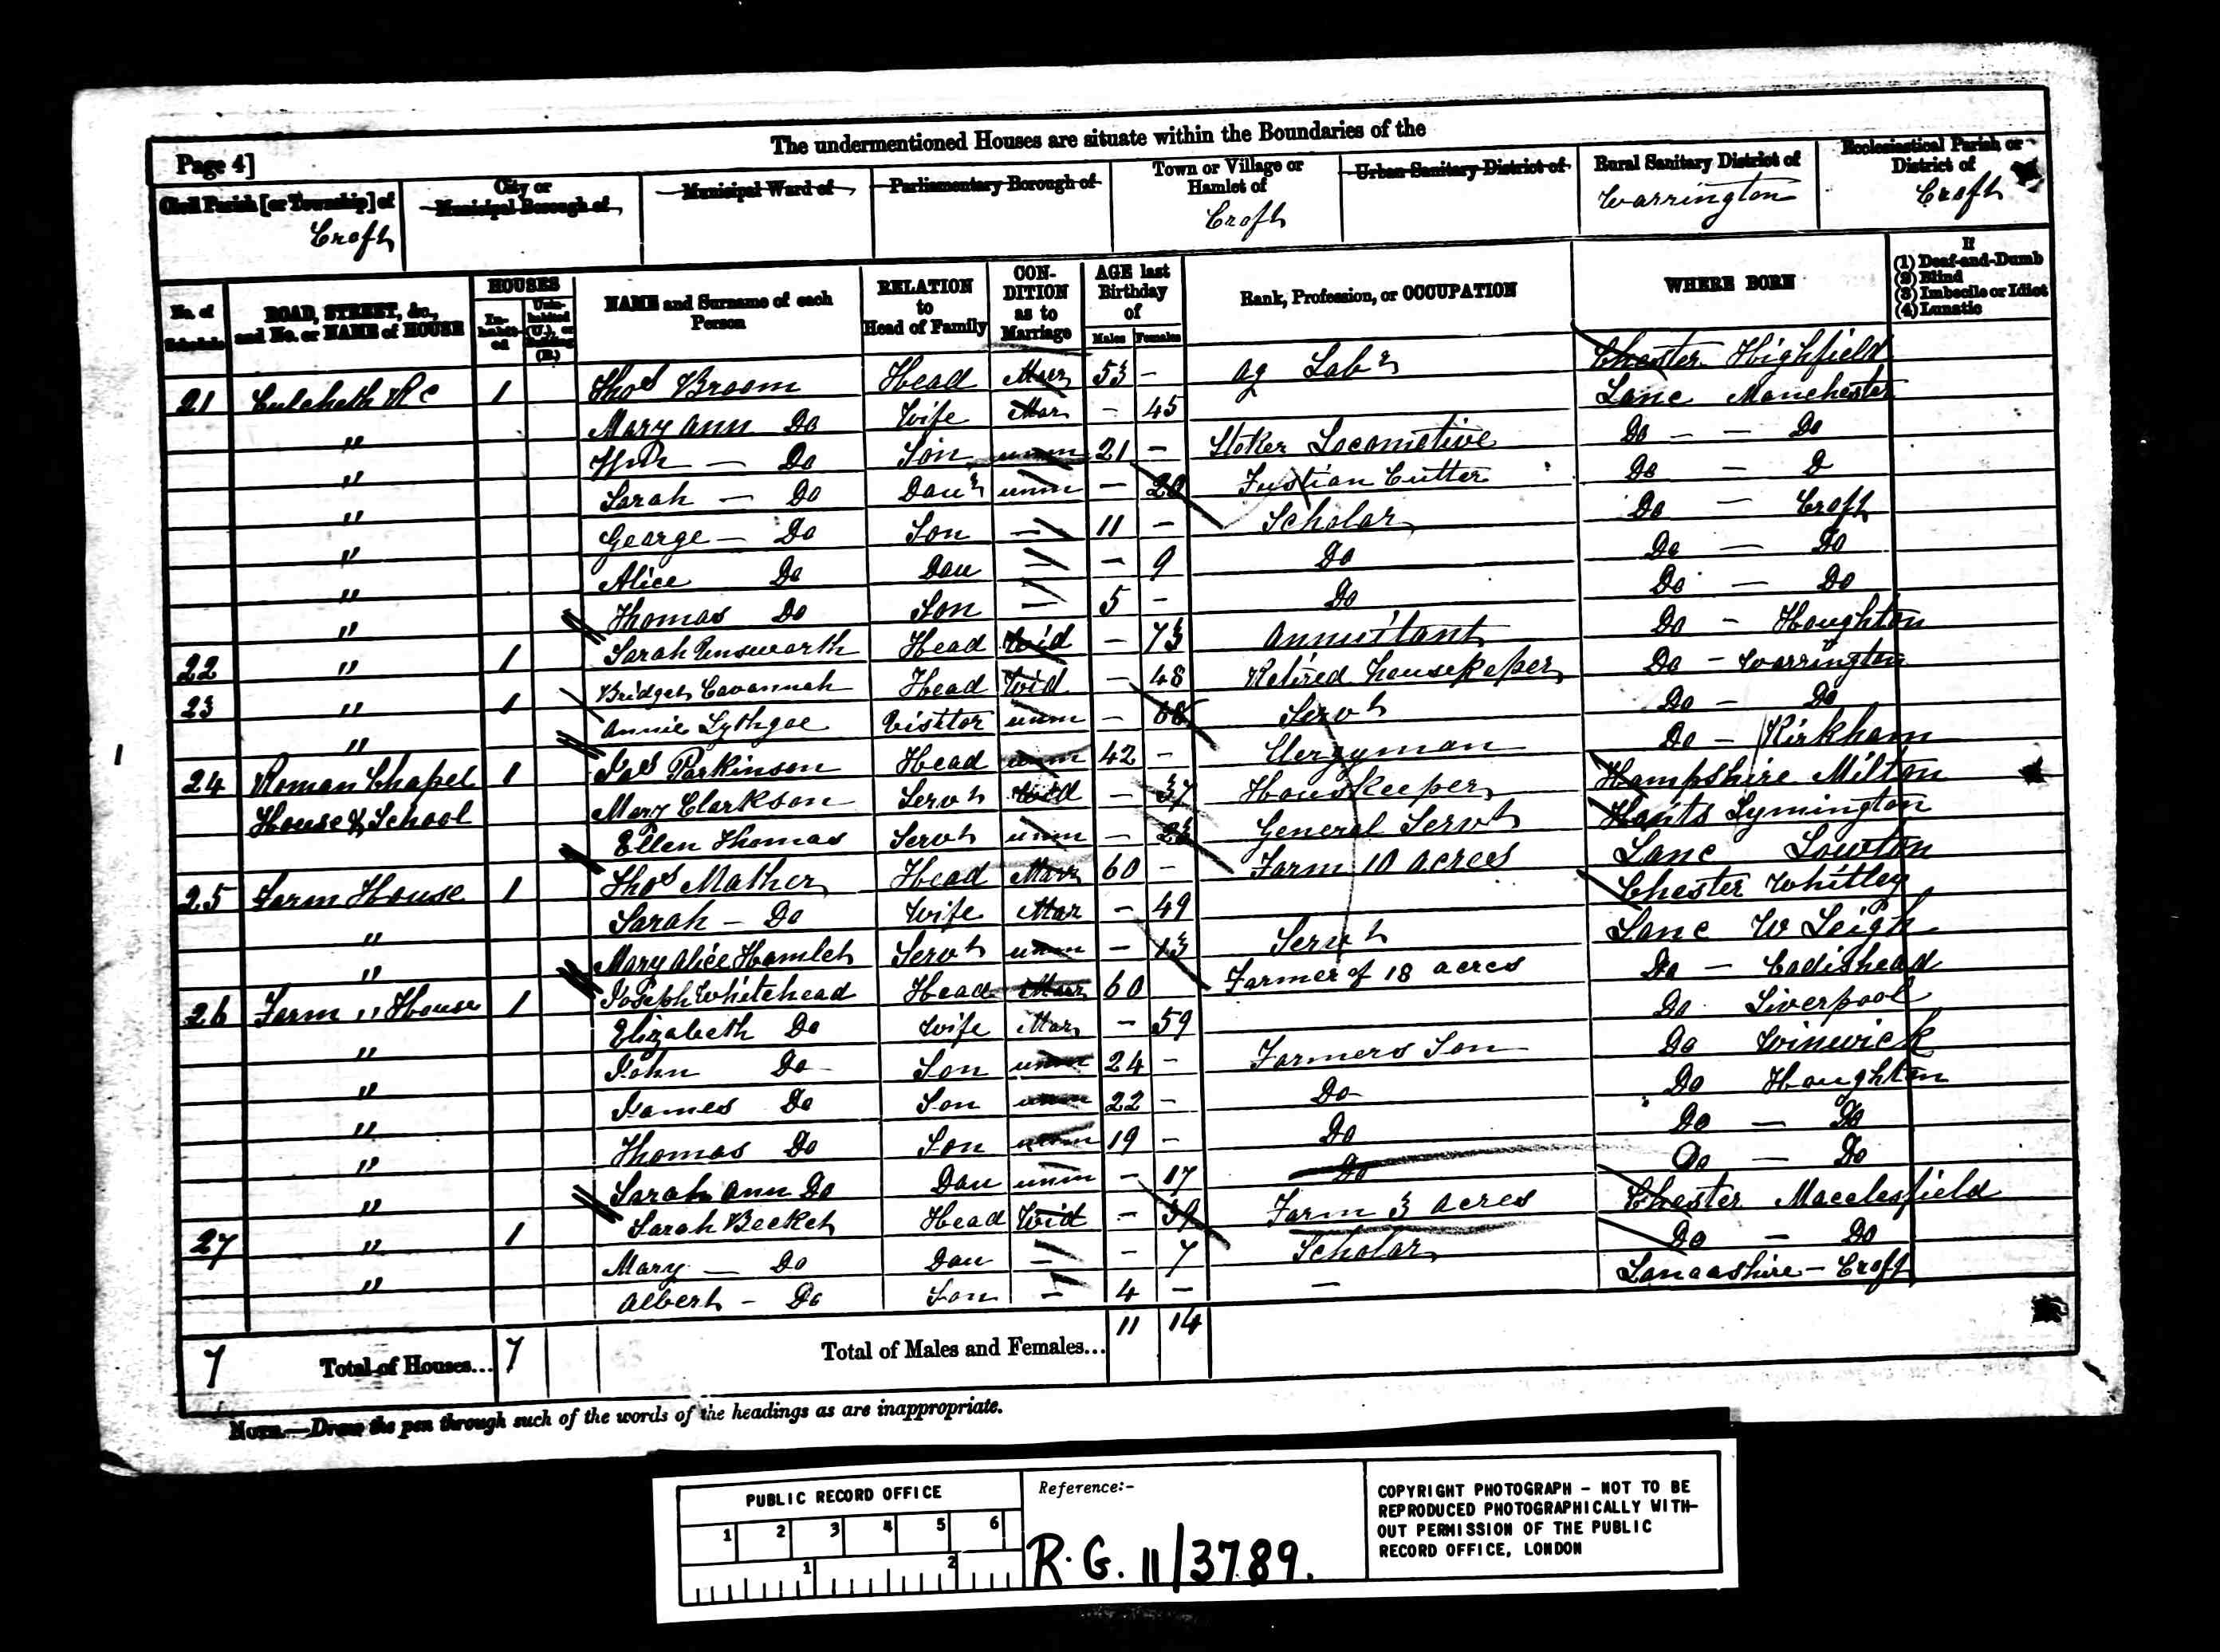 The undermentioned Houses are situate within the Boundaries of the
Page 4]
Civil Parish [or Township] of
Croft
City or
Municipal Borough of
Municipal Ward of
Parliamentary Borough of
Town or Village or
Hamlet of
Croft
Urban Sanitary District of
Rural Sanitary District of
Warrington
Ecclesiastical Parish or
District of
Croft
No. of
Schedule
ROAD, STREET, &c.,
and No. or NAME of HOUSE
HOUSES
In-
habit-
ed
Unin-
habited
(U.), or
Building
(B.)
NAME and Surname of each
Person
RELATION
to
Head of Family
CON-
DITION
as to
Marriage
AGE last
Birthday
of
Males
Females
Rank, Profession, or OCCUPATION
WHERE BORN
If
(1) Deaf-and-Dumb
(2) Blind
(3) Imbecile or Idiot
(4) Lunatic
21 Culcheth 1 Thos Broom Head Mar 53 - Ag Labr Chester Highfield
" Mary Ann Do Wife Mar - 45 Lanc Manchester
" Wm — Do Son unm 21 - Stoker Locomotive Do - - Do
" Sarah — Do Daur unm - 20 Fustian Cutter Do - D
" George — Do Son - 11 - Scholar Do - Croft
" Alice Do Dau - - 9 Do Do - Do
" Thomas Do Son - 5 - Do Do - Do
22 " 1 Sarah Unsworth Head Wid - 73 Annuitant Do - Houghton
23 " 1 Bridget Cavannah Head Wid - 48 Retired housekeper Do - Warrington
" Annie Lythgoe Visitor unm - 68 Servt Do - Do
24 Roman Chapel 1 Jas Parkinson Head unm 42 - Clergyman Do - Kirkham
House & School Mary Clarkson Servt Wid - 37 Houskeeper Hampshire Milton
Ellen Thomas Servt unm - 23 General Servt Hants Lymington
25 Farm House 1 Thos Mather Head Mar 60 - Farm 10 acres Lanc Lowton
" Sarah — Do Wife Mar - 49 Chester Whitley
" Mary Alice Hamlet Servt unm - 13 Servt Lanc W Leigh
26 Farm " House 1 Joseph Whitehead Head Mar 60 Farmer of 18 acres Do - Cadishead
" Elizabeth Do Wife Mar - 59 Do Liverpool
" John Do Son unm 24 - Farmers Son Do Winwick
" James Do Son unm 22 - Do Do Houghton
" Thomas Do Son unm 19 - Do Do - Do
" Sarah Ann Do Dau unm - 17 Do Do - Do
27 " 1 Sarah Becket Head Wid - 39 Farm 3 acres Chester Macclesfield
" Mary — Do Dau - - 7 Scholar Do - Do
Albert - Do Son - 4 - - Lancashire - Croft
7 Total of Houses... 7 Total of Males and Females... 11 14
NOTE.—Draw the pen through such of the words of the headings as are inappropriate.
PUBLIC RECORD OFFICE
1 2 3 4 5 6
1 2
Reference:-
R.G. 11/3789.
COPYRIGHT PHOTOGRAPH - NOT TO BE
REPRODUCED PHOTOGRAPHICALLY WITH-
OUT PERMISSION OF THE PUBLIC
RECORD OFFICE, LONDON